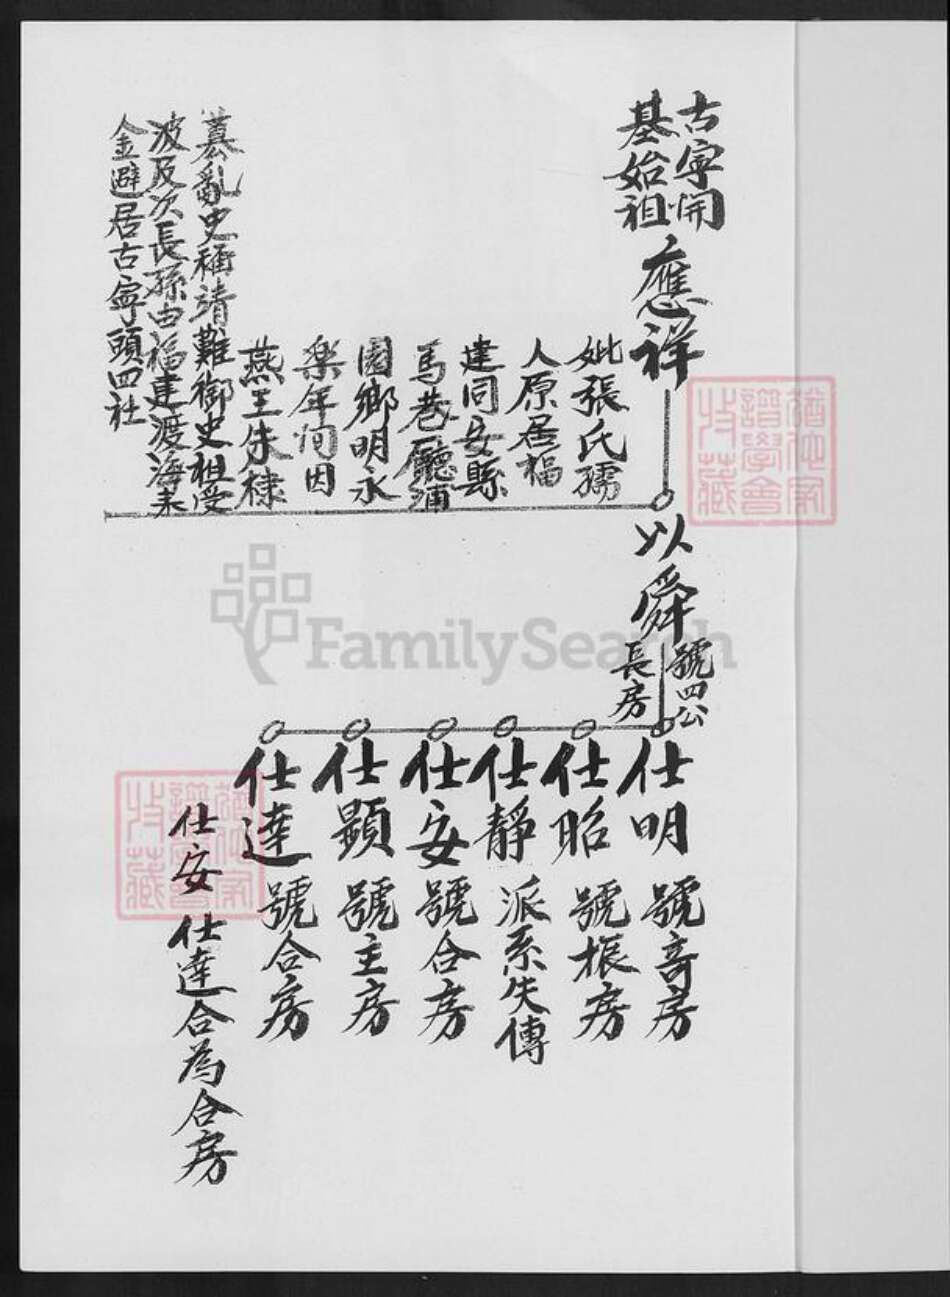 古寧開
基始祖
應祥
妣張氏孺
人原居福
建同安縣
馬巷廳浦
園鄉明永
樂年間因
燕王朱棣
纂亂史稱靖難御史祖受
波及次長孫由福建渡海来
金避居古寧頭四社
以舜
號四公
長房
仕明號奇房
仕昭號振房
仕靜派系失傳
仕安號合房
仕顯號主房
仕達號合房
仕安仕達合為合房
FamilySearch
譜學會
收藏
譜學會
收藏